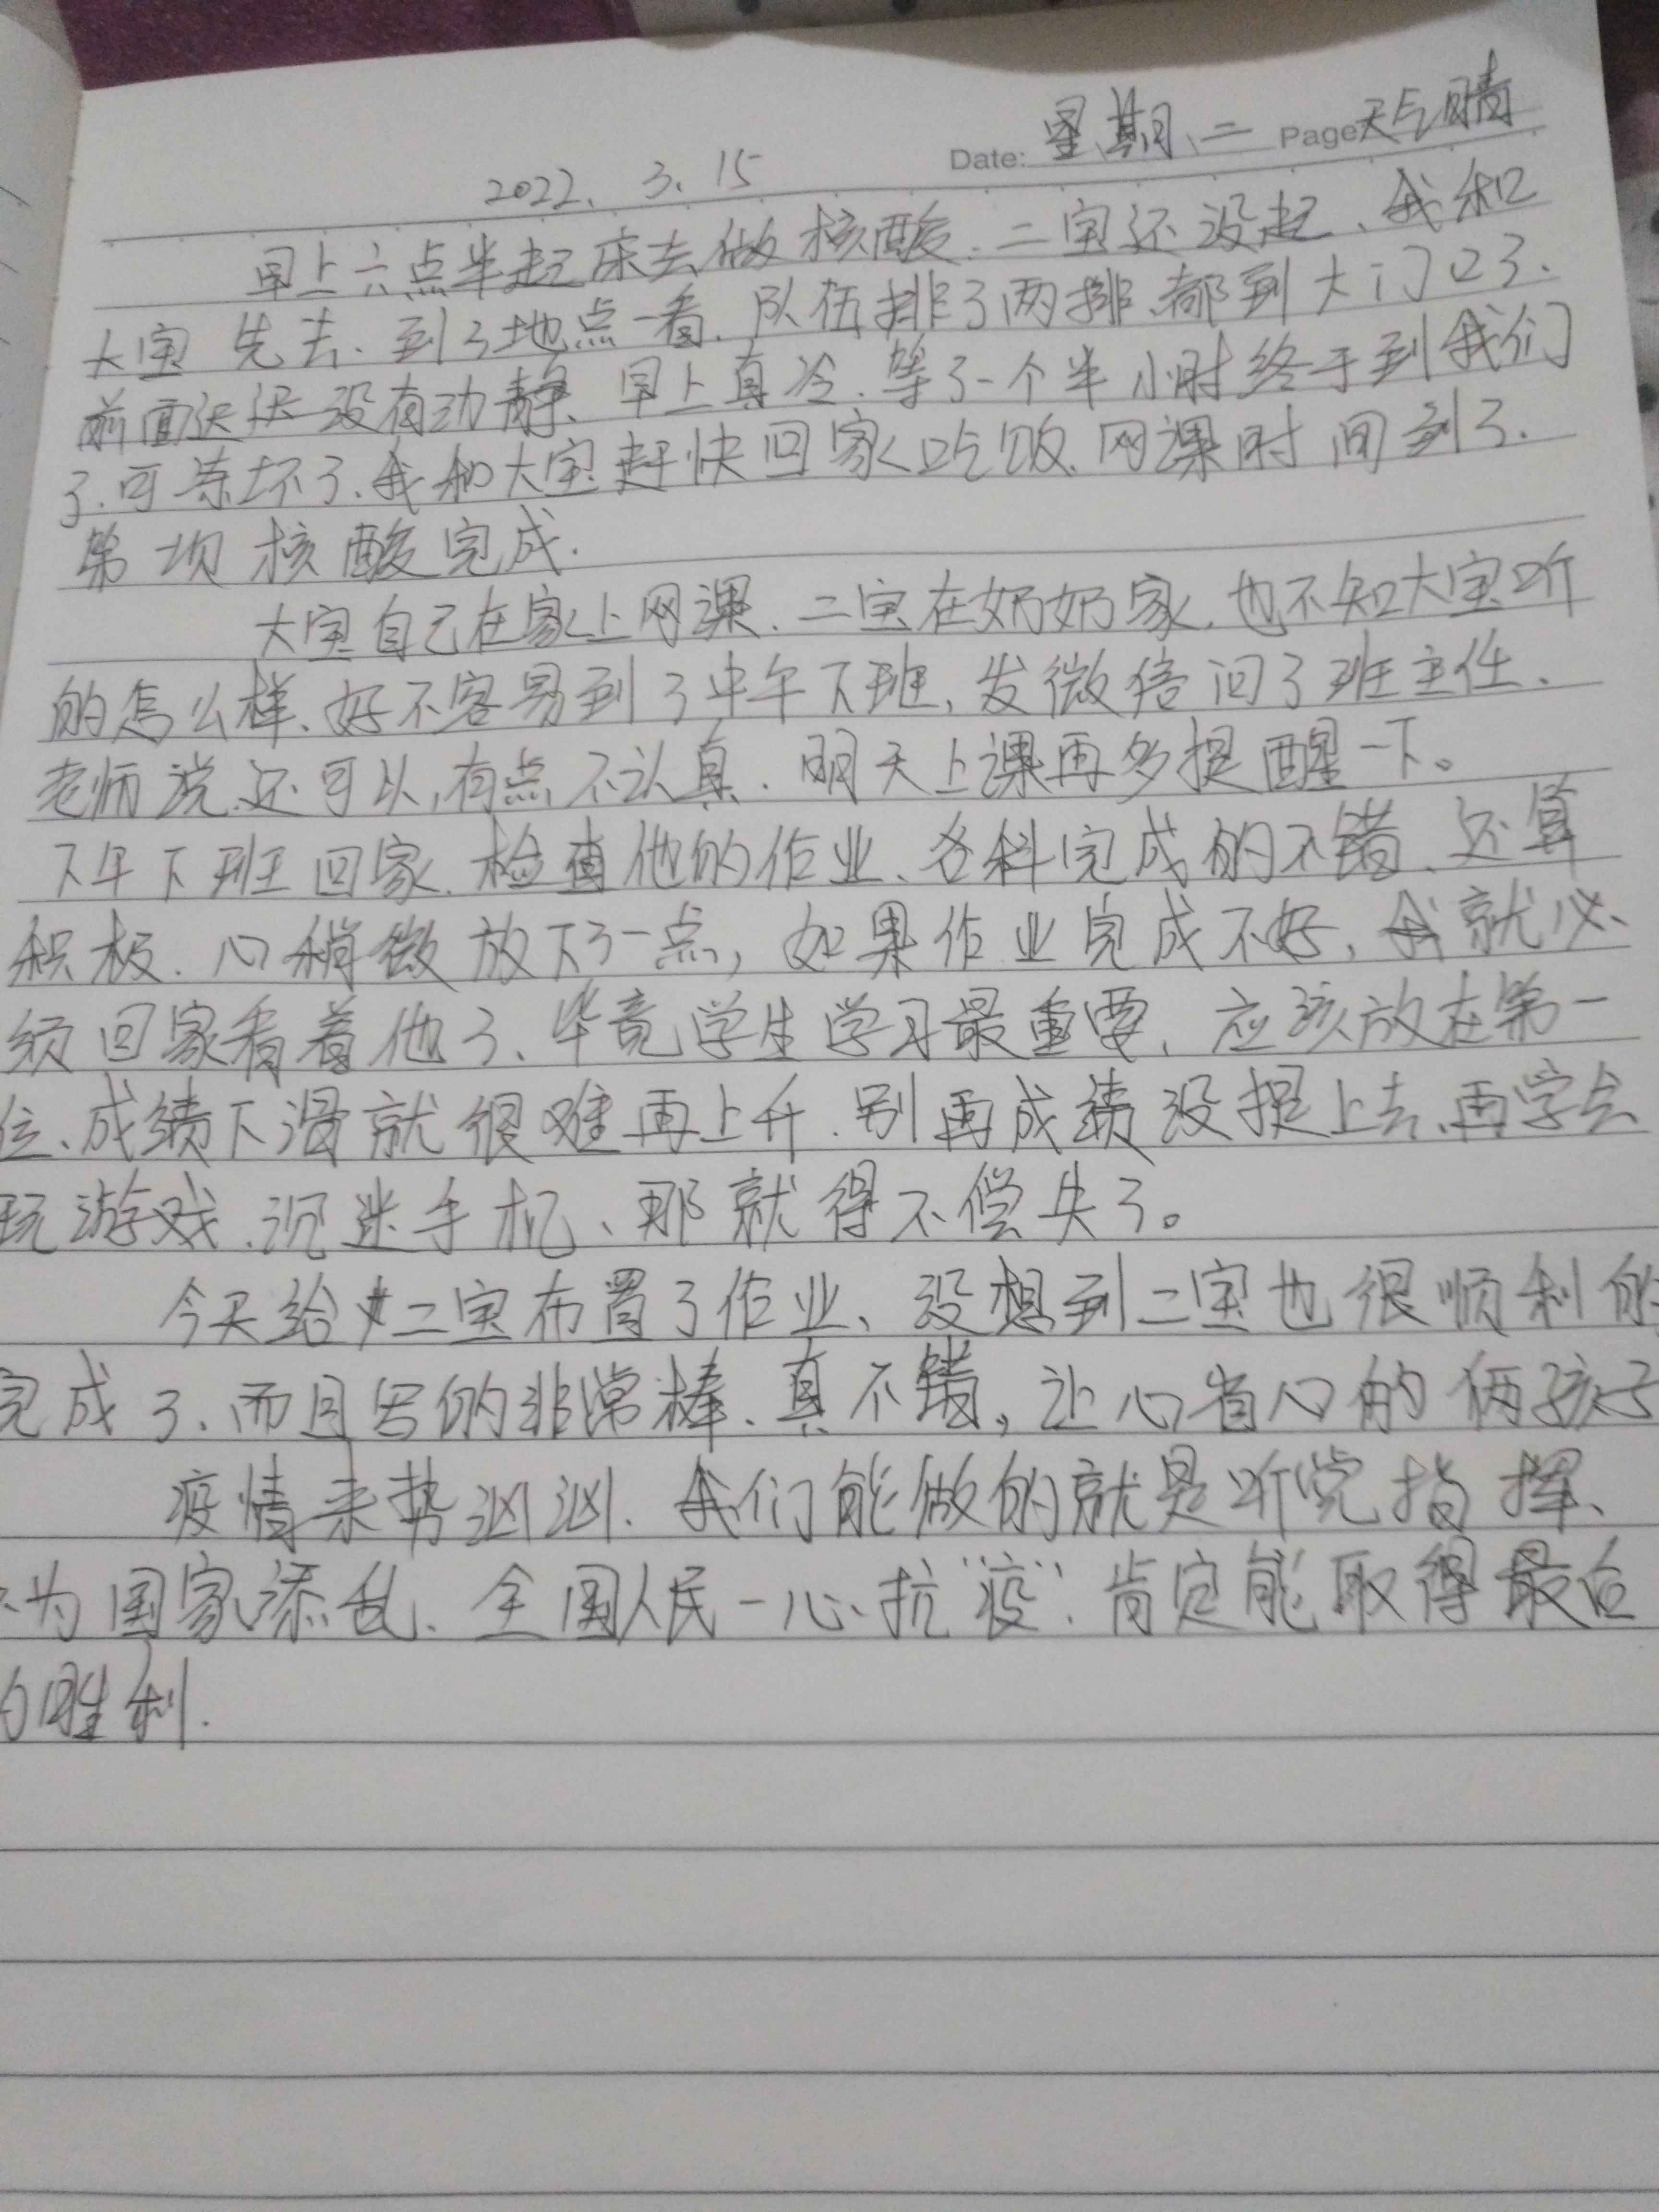 Date: 星期二 Page 天气晴
2022. 3. 15
早上六点半起床去做核酸.二宝还没起、我和
大宝先去.到了地点一看.队伍排了两排、都到大门口了.
前面迟迟没有动静、早上真冷.等了一个半小时终于到我们
了.可冻坏了、我和大宝赶快回家吃饭、网课时间到了.
第一项核酸完成.
大宝自己在家上网课.二宝在奶奶家,也不知大宝听
的怎么样、好不容易到了中午下班,发微信问了班主任、
老师说还可以,有点不认真.明天上课再多提醒一下。
下午下班回家.检查他的作业、各科完成的不错、还算
积极.心稍微放下了一点,如果作业完成不好,我就必
须回家看着他了、毕竟学生学习最重要,应该放在第一
位、成绩下滑就很难再上升.别再成绩没提上去、再学会
玩游戏.沉迷手机、那就得不偿失了。
今天给二宝布置了作业、没想到二宝也很顺利的
完成了、而且写的非常棒、真不错,让心省心的俩孩子
疫情来势汹汹.我们能做的就是听党指挥、
为国家添乱.全国人民一心抗"疫".肯定能取得最后
的胜利.